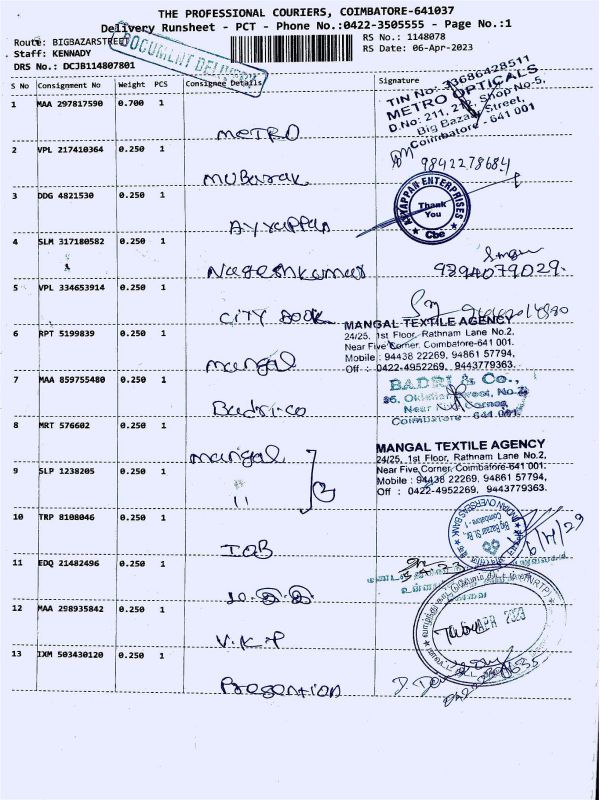 THE PROFESSIONAL COURIERS, COIMBATORE-641037
Delivery Runsheet - PCT - Phone No.:0422-3505555 - Page No.:1
Route: BIGBAZARSTREET
RS No.: 1148078
Staff: KENNADY
RS Date: 06-Apr-2023
DRS No.: DCJB114807801
DOCUMENT DELIVE
S No Consignment No Weight PCS Consignee Details Signature
1 MAA 297817590 0.700 1
METRO
TIN No: 33686428511
METRO OPTICALS
D.No: 211, 212, Shop No-5,
Big Bazaar Street,
Coimbatore - 641 001
2 VPL 217410364 0.250 1
Mubarak
9842278684
3 DDG 4821530 0.250 1
Ayyappan
AYYAPPAN ENTERPRISES
Thank
You
Cbe
4 SLM 317180582 0.250 1
Nageshkumar
9894079029.
5 VPL 334653914 0.250 1
CITY BOOK
6 RPT 5199839 0.250 1
mangal
MANGAL TEXTILE AGENCY
24/25, 1st Floor, Rathnam Lane No.2,
Near Five Corner, Coimbatore-641 001.
Mobile : 94438 22269, 94861 57794,
Off : 0422-4952269, 9443779363.
7 MAA 859755480 0.250 1
Badri.co
BADRI & Co.,
Near Corner
Coimbatore - 641 001.
8 MRT 576602 0.250 1
mangal
MANGAL TEXTILE AGENCY
24/25, 1st Floor, Rathnam Lane No.2,
Near Five Corner, Coimbatore-641 001.
Mobile : 94438 22269, 94861 57794,
Off : 0422-4952269, 9443779363.
9 SLP 1238205 0.250 1
11
2
10 TRP 8108046 0.250 1
IOB
INDIAN OVERSEAS BANK
Big Bazaar St. Br.,
Coimbatore - 1
11 EDQ 21482496 0.250 1
12 MAA 298935842 0.250 1
V.K.P
APR 2023
13 IXM 503430120 0.250 1